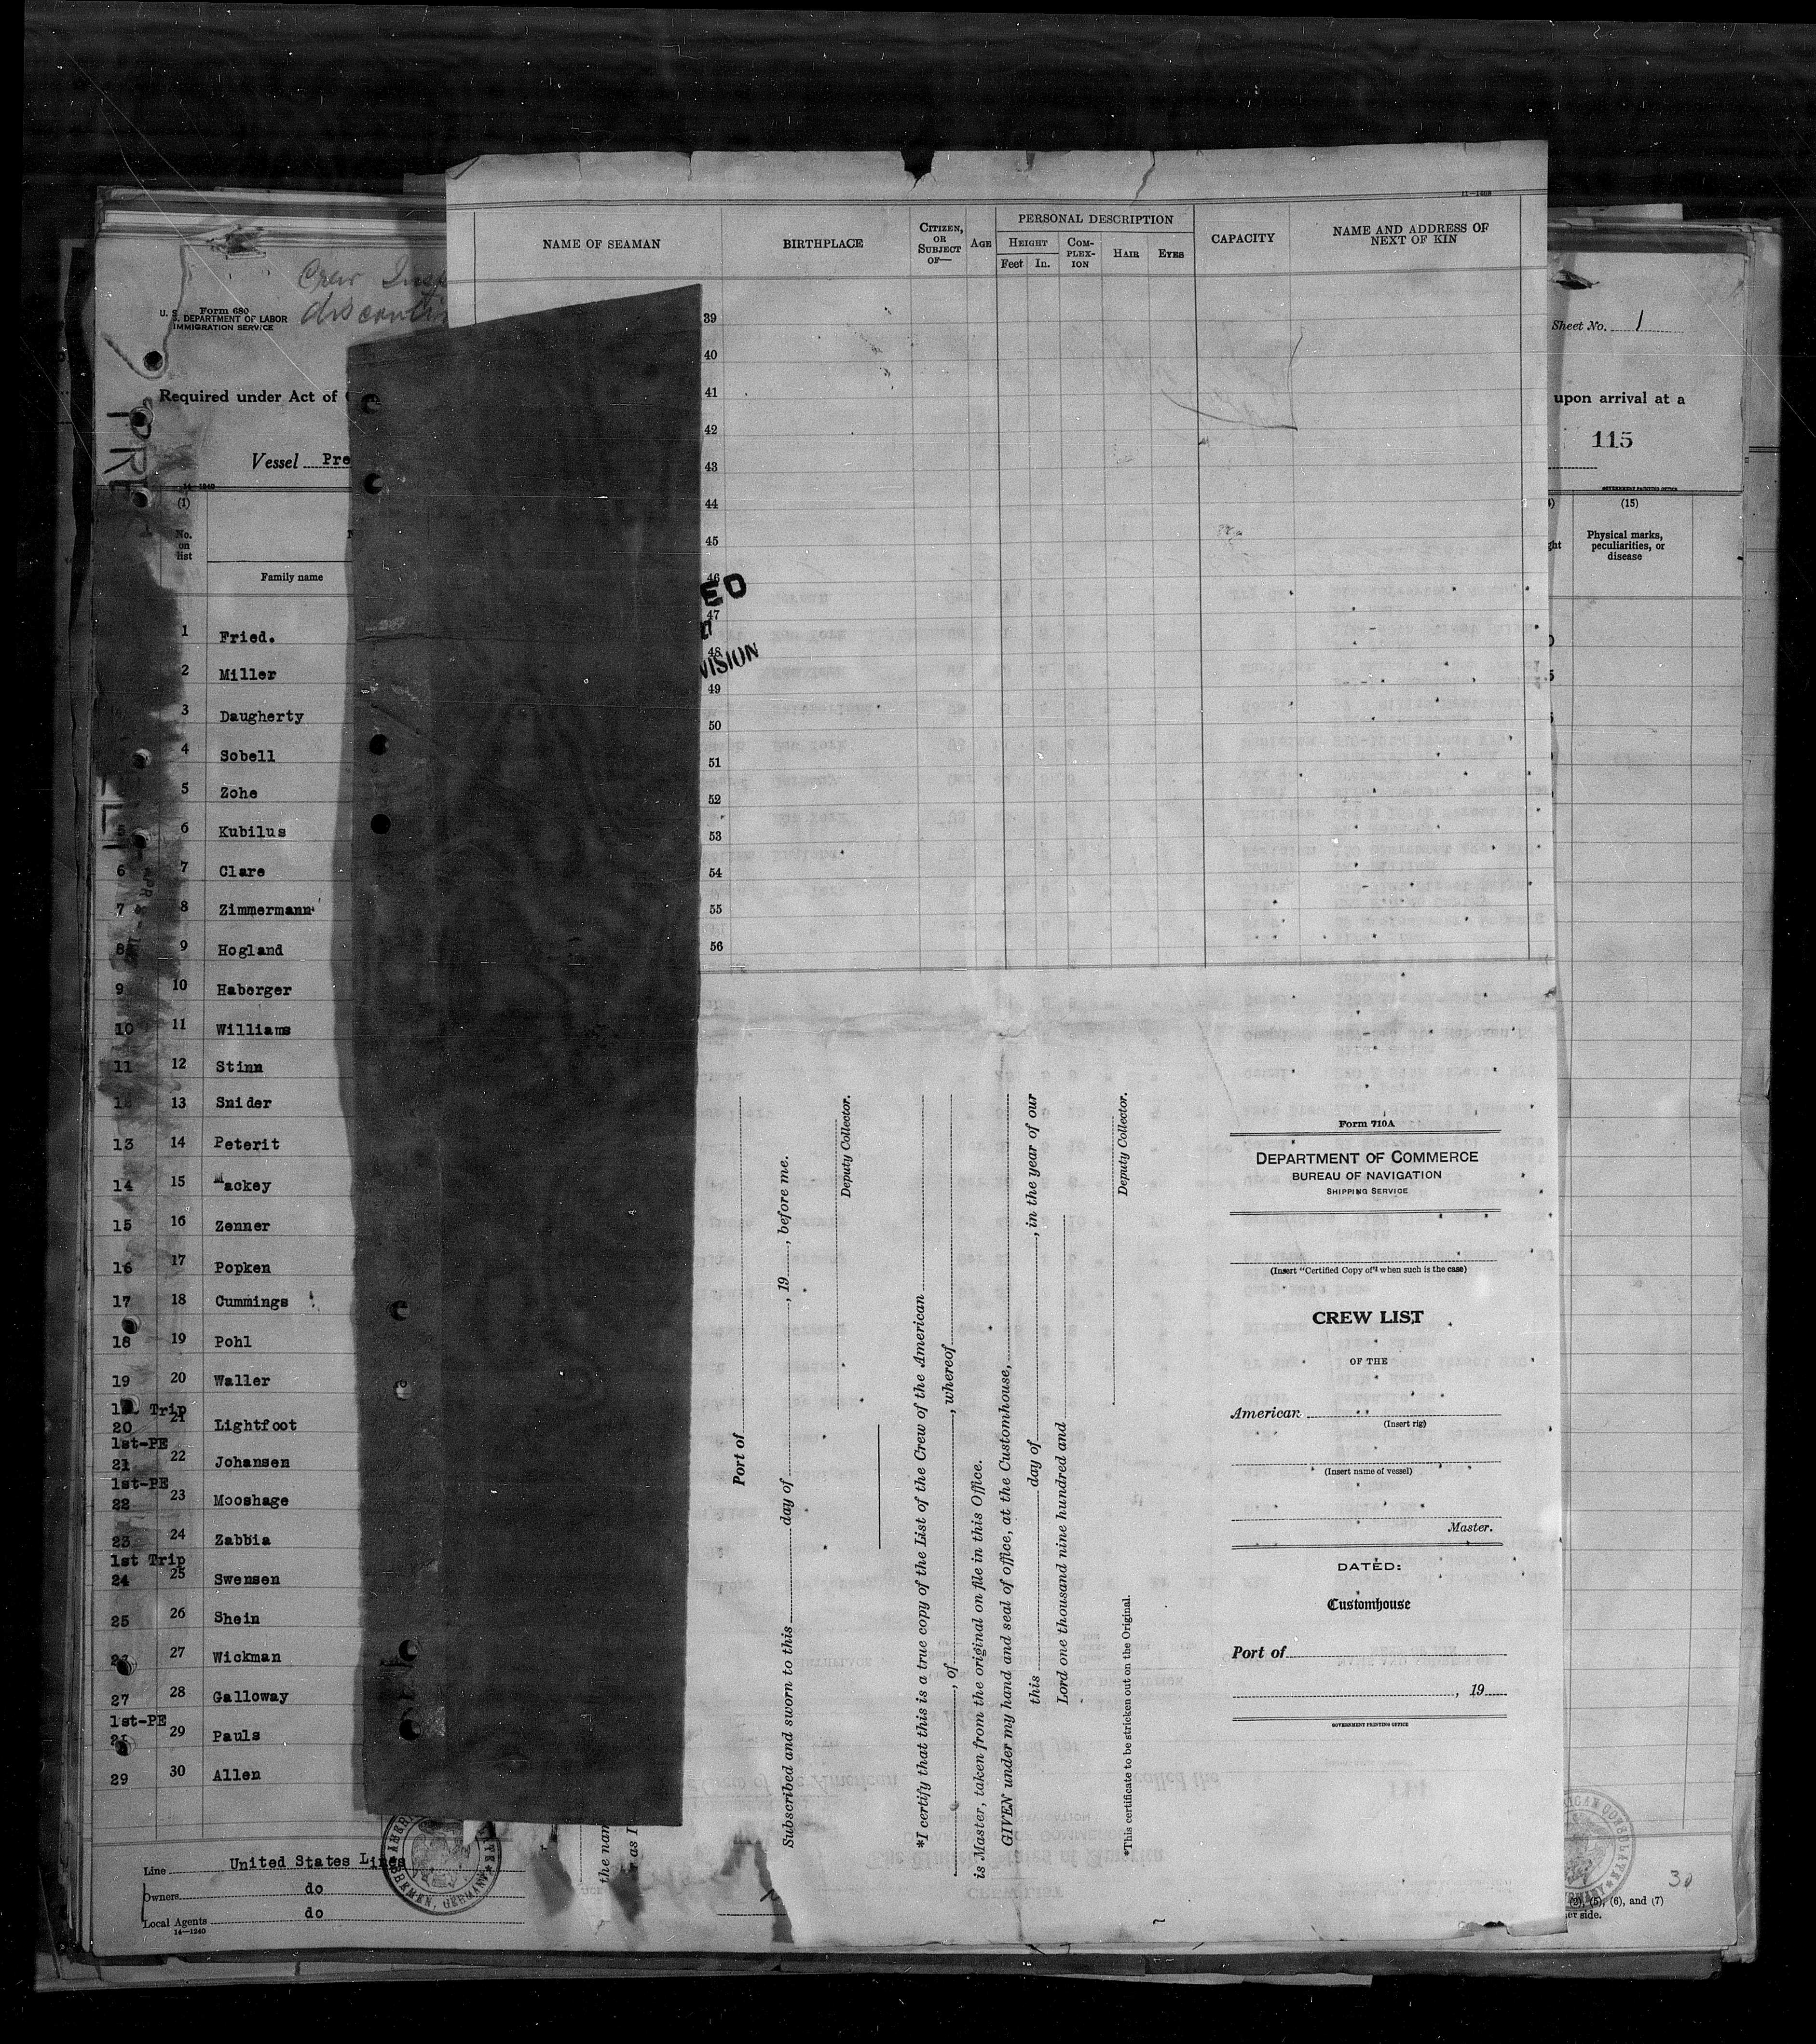 11—1698
NAME OF SEAMAN
BIRTHPLACE
CITIZEN, OR SUBJECT OF—
AGE
PERSONAL DESCRIPTION
HEIGHT
Feet In.
COM-PLEX-ION
HAIR
EYES
CAPACITY
NAME AND ADDRESS OF NEXT OF KIN
39
40
41
42
43
44
45
46
47
48
49
50
51
52
53
54
55
56
Crew
Form 680
U. S. DEPARTMENT OF LABOR
IMMIGRATION SERVICE
Required under Act of
Vessel Pre
14—1240
(1)
No. on list
Family name
1 Fried.
2 Miller
3 Daugherty
4 Sobell
5 Zohe
5 6 Kubilus
6 7 Clare
7 8 Zimmermann
8 9 Hogland
9 10 Haberger
10 11 Williams
11 12 Stinn
12 13 Snider
13 14 Peterit
14 15 Mackey
15 16 Zenner
16 17 Popken
17 18 Cummings
18 19 Pohl
19 20 Waller
1st Trip
20 21 Lightfoot
1st-PE
21 22 Johansen
1st-PE
22 23 Mooshage
23 24 Zabbia
1st Trip
24 25 Swensen
25 26 Shein
27 Wickman
27 28 Galloway
1st-PE
29 Pauls
29 30 Allen
Line United States Lines
Owners do
Local Agents do
14—1240
BREMEN, GERMANY
ED
VISION
the nam
as I
Port of
Subscribed and sworn to this day of , 19 , before me.
Deputy Collector.
*I certify that this is a true copy of the List of the Crew of the American
, of , whereof
is Master, taken from the original on file in this Office.
GIVEN under my hand and seal of office, at the Customhouse,
this day of , in the year of our
Lord one thousand nine hundred and
Deputy Collector.
*This certificate to be stricken out on the Original.
Form 710A
DEPARTMENT OF COMMERCE
BUREAU OF NAVIGATION
SHIPPING SERVICE
(Insert "Certified Copy of" when such is the case)
CREW LIST
OF THE
American
(Insert rig)
(Insert name of vessel)
Master.
DATED:
Customhouse
Port of
, 19
GOVERNMENT PRINTING OFFICE
Sheet No. 1
upon arrival at a
115
GOVERNMENT PRINTING OFFICE
(15)
Physical marks, peculiarities, or disease
30
(5), (6), and (7)
side.